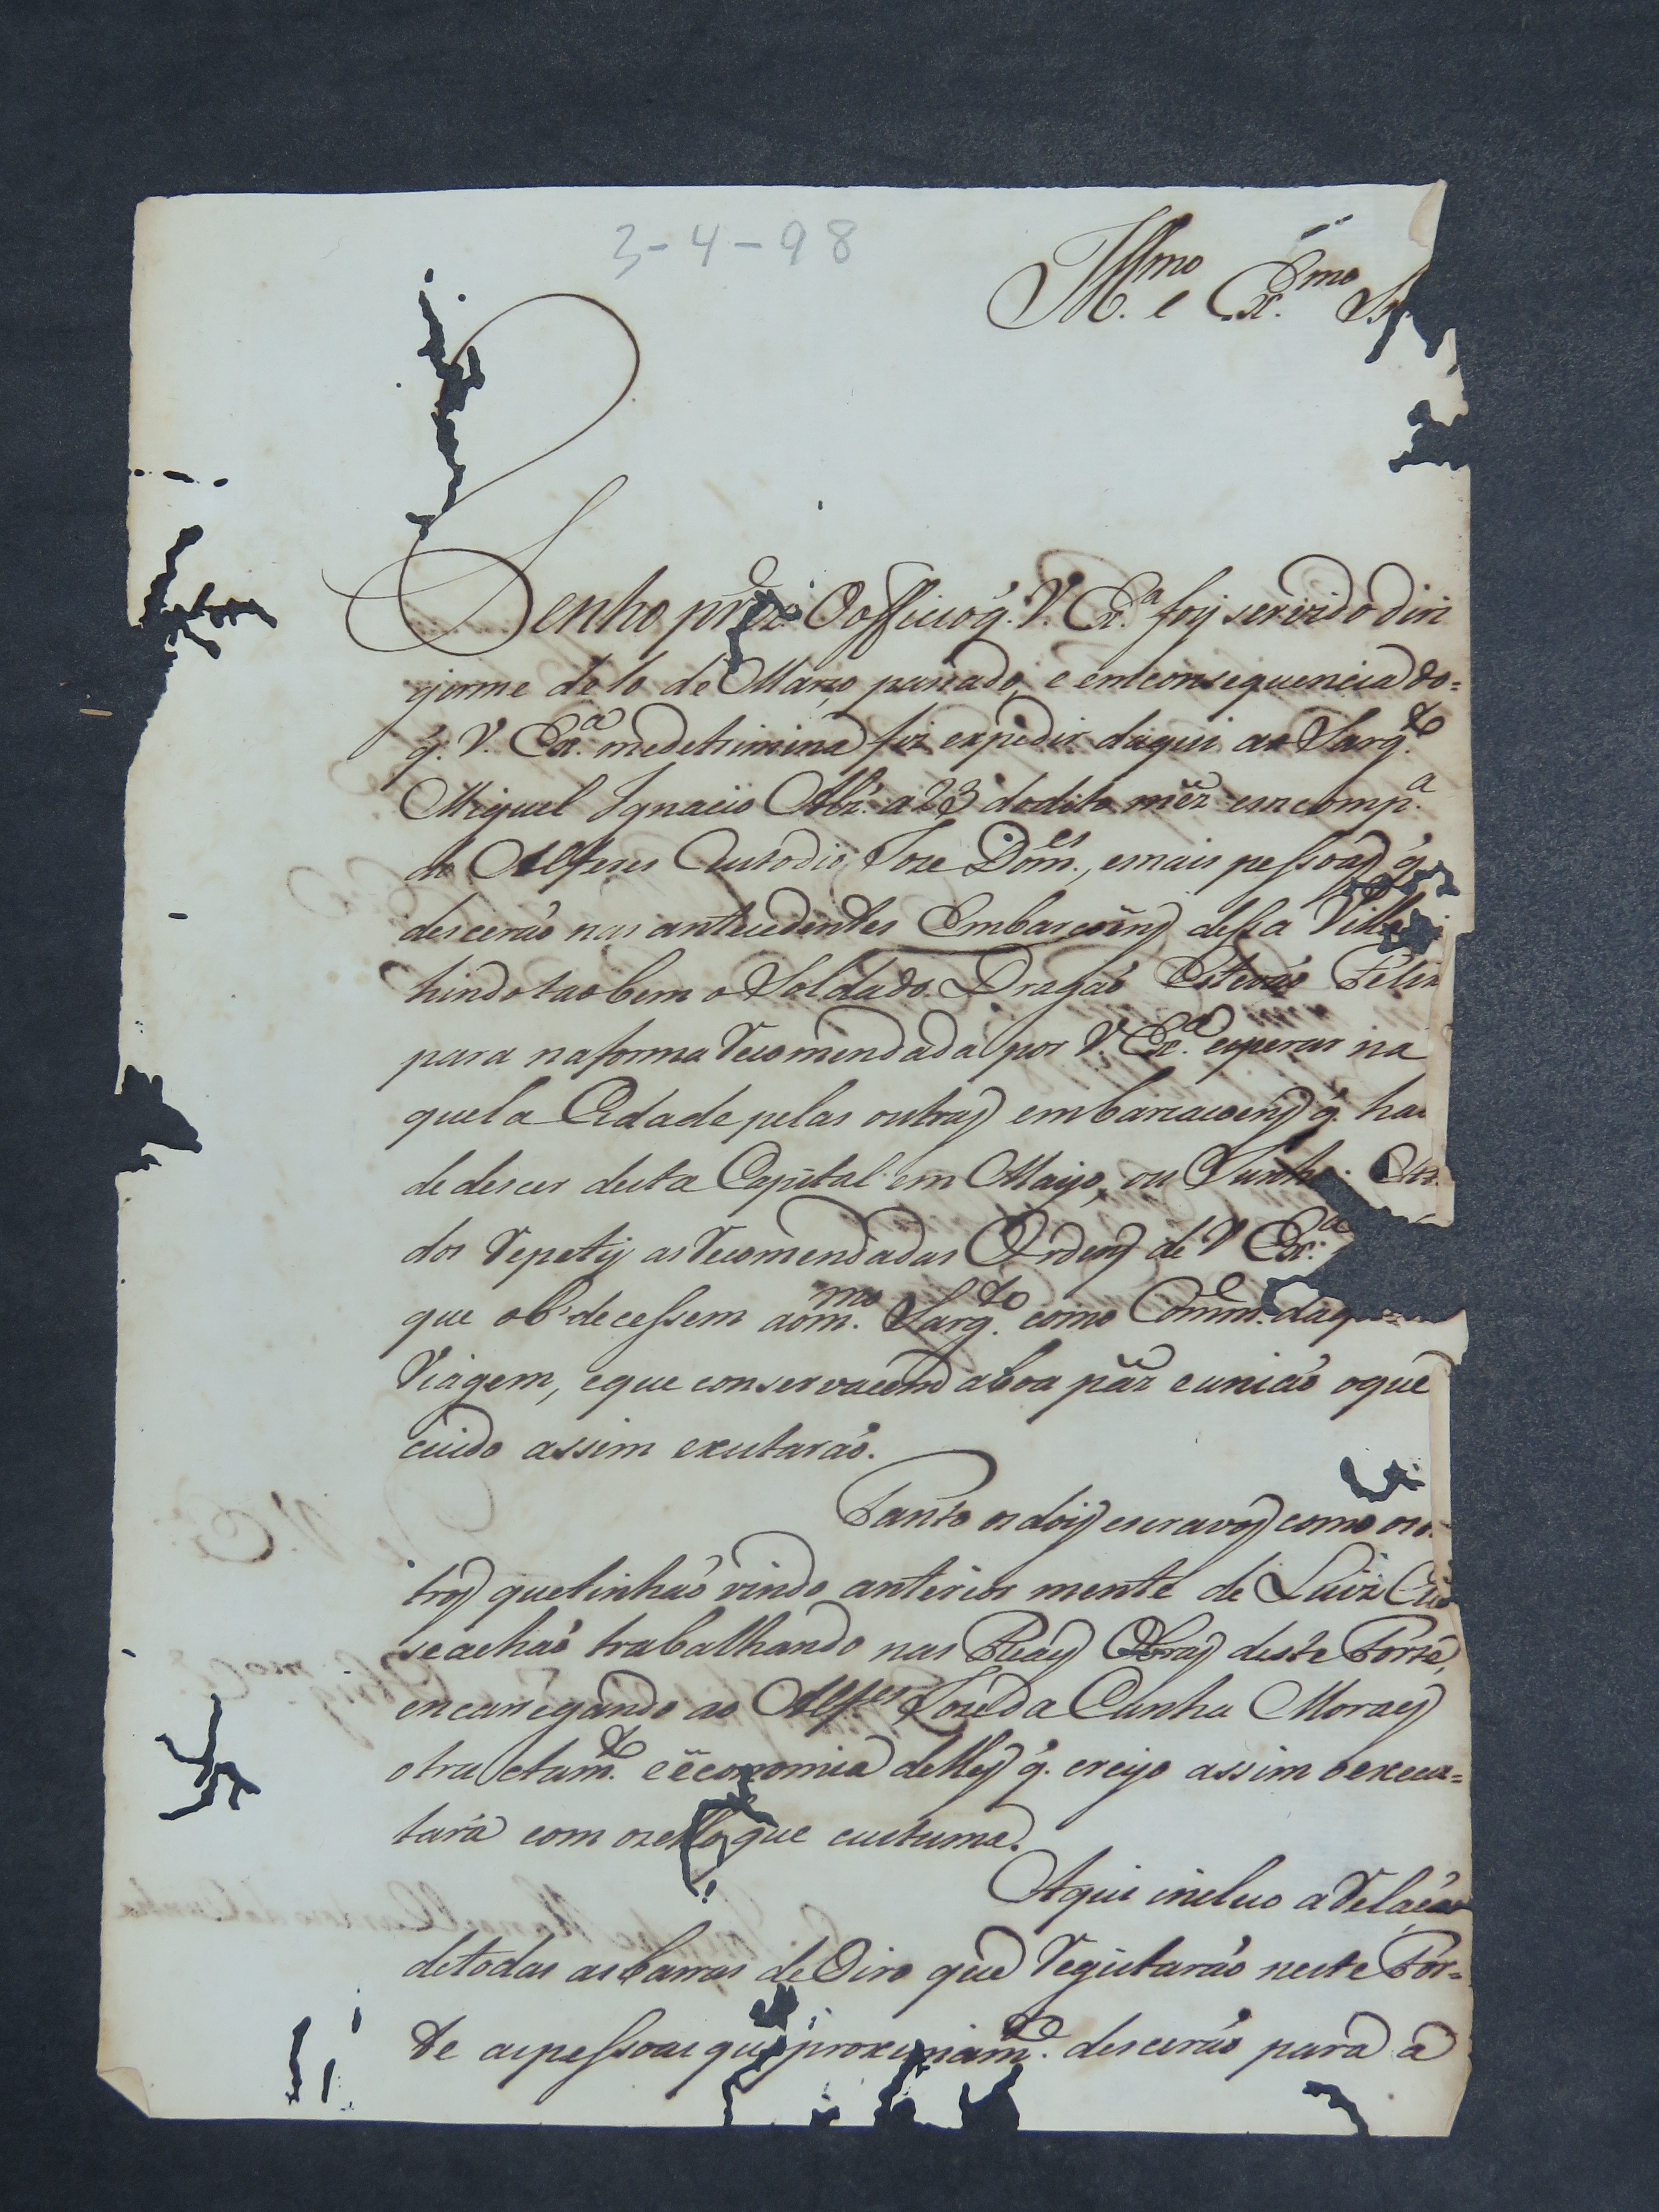 3-4-98
Ill.mo e Ex.mo Sr.
Tenho prez.e O officio q. V. Ex.a foy servido diri
girme de 10 de Março passado, e em consequencia do=
q. V. Ex.a medetrimina fiz expedir daqui ao Sarg.to
Miguel Ignacio Alz. a 23 dodito mêz em comp.a
do Alferes Custodio Joze Dom.es, emais pessoas q.
descerão nas antecedentes Embarcoins dessa Villa
hindo taobem o Soldado Dragão Estevão Felix
para naforma recomendada por V. Ex.a esperar na
quela Cidade pelas outras embarcacoens q. hao
de descer desta Capital em Mayo, ou Junho.
dos repety as recomendadas Ordens de V Ex.a
que obdecessem aom.mo Sarg.to como Comm.e daque
Viagem, eque conservacem aboa páz eunião oque
cuido assim exutarão.
Tanto os dois escravos como os o
tros quetinhão vindo anterior mente de Luiz
seachão trabalhando nas Reaes Obras deste Forte,
encarregando ao Alf.es Joze da Cunha Moraes
otractam.to eëconomia delles q. creyo assim oexecu=
tará com ozello que custuma.
Aqui incluo a relacão
detodas as barras de Oiro que registarão neste For=
te aspessoas que proximam.e descerão para a